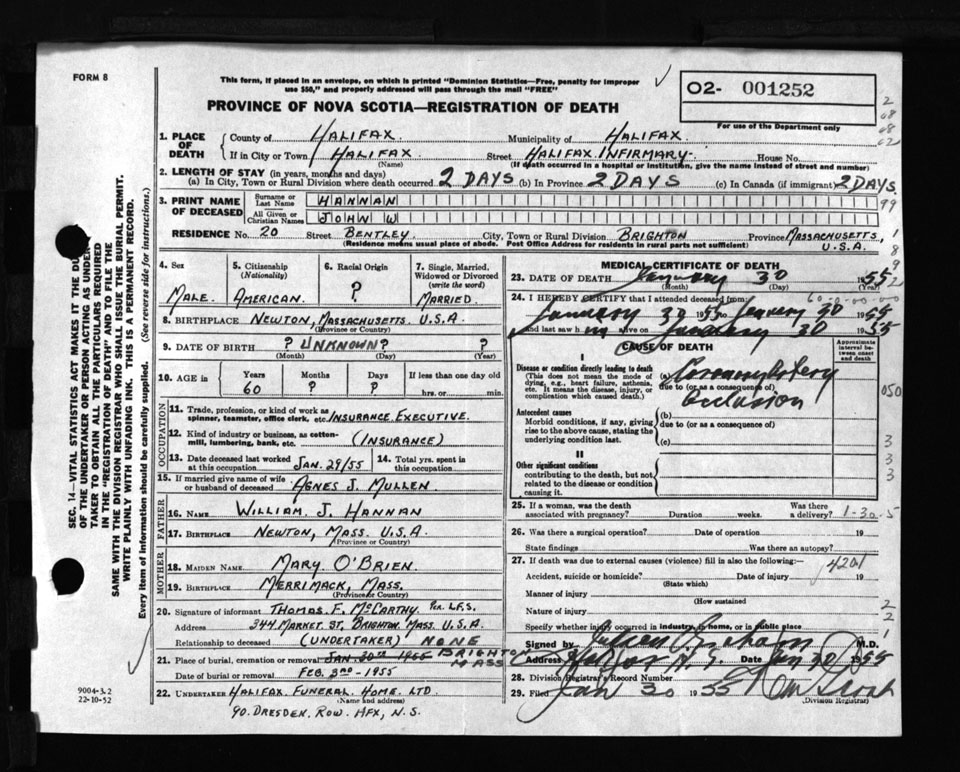 FORM 8
This form, if placed in an envelope, on which is printed "Dominion Statistics—Free, penalty for improper
use $50," and properly addressed will pass through the mail "FREE"
PROVINCE OF NOVA SCOTIA—REGISTRATION OF DEATH
02- 001252
For use of the Department only
1. PLACE OF DEATH
County of HALIFAX. Municipality of HALIFAX.
If in City or Town HALIFAX Street HALIFAX INFIRMARY House No.
(Name) (If death occurred in a hospital or institution, give the name instead of street and number)
2. LENGTH OF STAY (in years, months and days)
(a) In City, Town or Rural Division where death occurred 2 DAYS (b) In Province 2 DAYS (c) In Canada (if immigrant) 2 DAYS
3. PRINT NAME OF DECEASED
Surname or Last Name HANNAN
All Given or Christian Names JOHN W
RESIDENCE No. 20 Street BENTLEY City, Town or Rural Division BRIGHTON Province MASSACHUSETTS, U.S.A.
(Residence means usual place of abode. Post Office Address for residents in rural parts not sufficient)
4. Sex
MALE.
5. Citizenship (Nationality)
AMERICAN.
6. Racial Origin
?
7. Single, Married, Widowed or Divorced (write the word)
MARRIED
8. BIRTHPLACE NEWTON, MASSACHUSETTS. U.S.A.
(Province or Country)
9. DATE OF BIRTH ? UNKNOWN ? ?
(Month) (Day) (Year)
10. AGE in Years Months Days If less than one day old
60 ? ? hrs. or min.
OCCUPATION
11. Trade, profession, or kind of work as spinner, teamster, office clerk, etc. INSURANCE EXECUTIVE.
12. Kind of industry or business, as cotton-mill, lumbering, bank, etc. (INSURANCE)
13. Date deceased last worked at this occupation JAN. 29/55
14. Total yrs. spent in this occupation
15. If married give name of wife or husband of deceased AGNES J. MULLEN
FATHER
16. NAME WILLIAM. J. HANNAN
17. BIRTHPLACE NEWTON, MASS. U.S.A.
(Province or Country)
MOTHER
18. MAIDEN NAME MARY O'BRIEN.
19. BIRTHPLACE MERRIMACK, MASS.
(Province or Country)
20. Signature of informant THOMAS. F. McCARTHY PER L.F.S.
Address 344 MARKET ST, BRIGHTON MASS. U.S.A.
Relationship to deceased (UNDERTAKER) NONE
21. Place of burial, cremation or removal JAN. 30TH 1955 BRIGHTON MASS
Date of burial or removal FEB. 2ND - 1955
22. UNDERTAKER HALIFAX FUNERAL HOME LTD
(Name and address)
90. DRESDEN. ROW. HFX, N.S.
MEDICAL CERTIFICATE OF DEATH
23. DATE OF DEATH January 30 1955
(Month) (Day)
24. I HEREBY CERTIFY that I attended deceased from
January 30 1955 to January 30 1955
and last saw him alive on January 30 1955
CAUSE OF DEATH
Approximate interval between onset and death
I
Disease or condition directly leading to death
(This does not mean the mode of dying, e.g., heart failure, asthenia, etc. It means the disease, injury, or complication which caused death.)
(a) Coronary Artery
due to (or as a consequence of)
Occlusion
Antecedent causes
Morbid conditions, if any, giving rise to the above cause, stating the underlying condition last.
(b)
due to (or as a consequence of)
(c)
II
Other significant conditions
contributing to the death, but not related to the disease or condition causing it.
25. If a woman, was the death associated with pregnancy? Duration weeks. Was there a delivery?
1-30-5
26. Was there a surgical operation? Date of operation 19
State findings Was there an autopsy?
27. If death was due to external causes (violence) fill in also the following:—
4201
Accident, suicide or homicide? Date of injury 19
(State which)
Manner of injury
(How sustained
Nature of injury
Specify whether injury occurred in industry, in home, or in public place
Signed by Graham M.D.
Address Halifax N.S. Date Jan 30 1955
28. Division Registrar's Record Number
29. Filed Jan 30 1955
(Division Registrar)
9004-3.2
22-10-52
SEC. 14—VITAL STATISTICS ACT MAKES IT THE DU
OF THE UNDERTAKER OR PERSON ACTING AS UNDER-
TAKER TO OBTAIN ALL THE PARTICULARS REQUIRED
IN THE "REGISTRATION OF DEATH" AND TO FILE THE
SAME WITH THE DIVISION REGISTRAR WHO SHALL ISSUE THE BURIAL PERMIT.
WRITE PLAINLY WITH UNFADING INK. THIS IS A PERMANENT RECORD.
Every item of information should be carefully supplied. (See reverse side for instructions.)